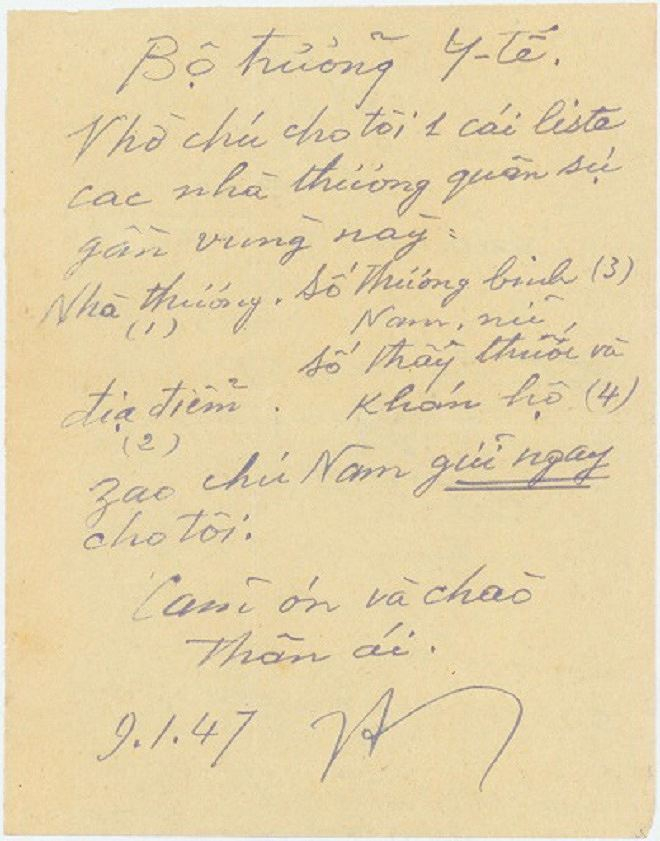 Bộ trưởng Y-tế.
Nhờ chú cho tôi 1 cái liste
các nhà thương quân sự
gần vùng này:
Nhà thương. Số thương binh (3)
(1) Nam, nữ,
Số thầy thuốc và
địa điểm. Khán hộ (4)
(2)
zao chú Nam gửi ngay
cho tôi.
Cám ơn và chào
Thân ái.
9.1.47